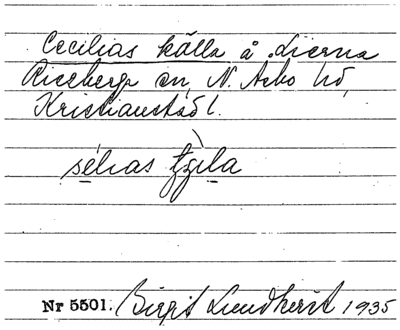 Cecilias källa å Lierna
Riseberga sn, N. Åsbo hd,
Kristianstad l.
Nr 5501. Birgit Lundkvist 1935